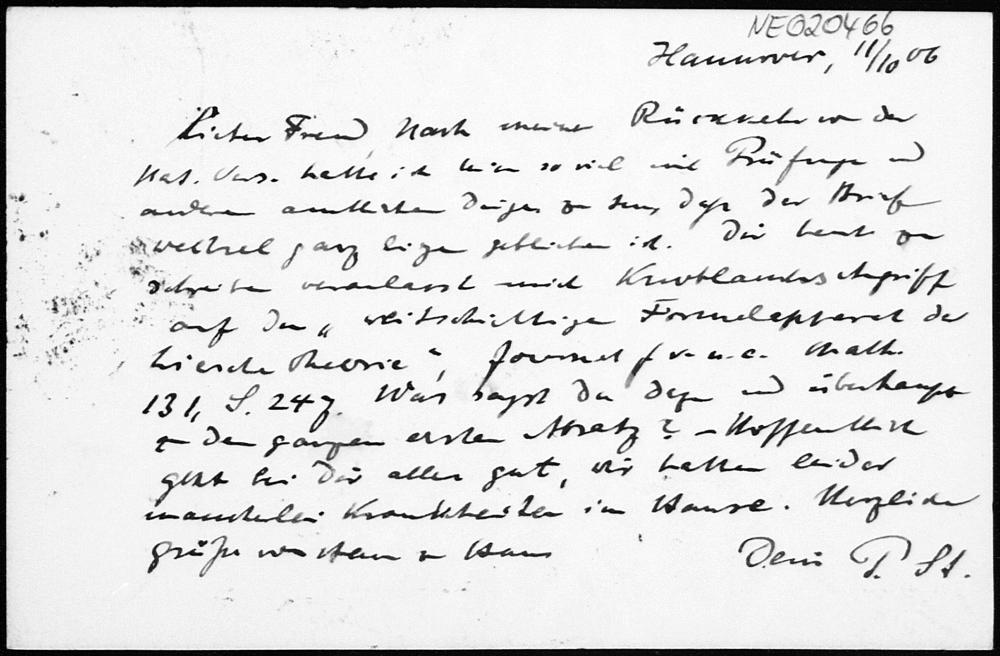 NEO20466
Hannover, 11/10 06
Lieber Freund, Nach meiner Rückkehr von der
Nat. Vers. hatte ich hier so viel mit Prüfungen und
anderen amtlichen Dingen zu tun, dass der Brief
wechsel ganz liegen geblieben ist. Dir heute zu
schreiben veranlasst mich Knoblauchs Angriff
auf den „weitschichtigen Formelapparat der
Lieschen Theorie“, Journal f r. u. a. Math.
131, S. 247. Was sagst Du dazu und überhaupt
zu dem ganzen ersten Absatz? – Hoffentlich
geht bei Dir alles gut, wir hatten leider
mancherlei Krankheiten im Hause. Herzliche
Grüße von Haus zu Haus
Dein P. St.